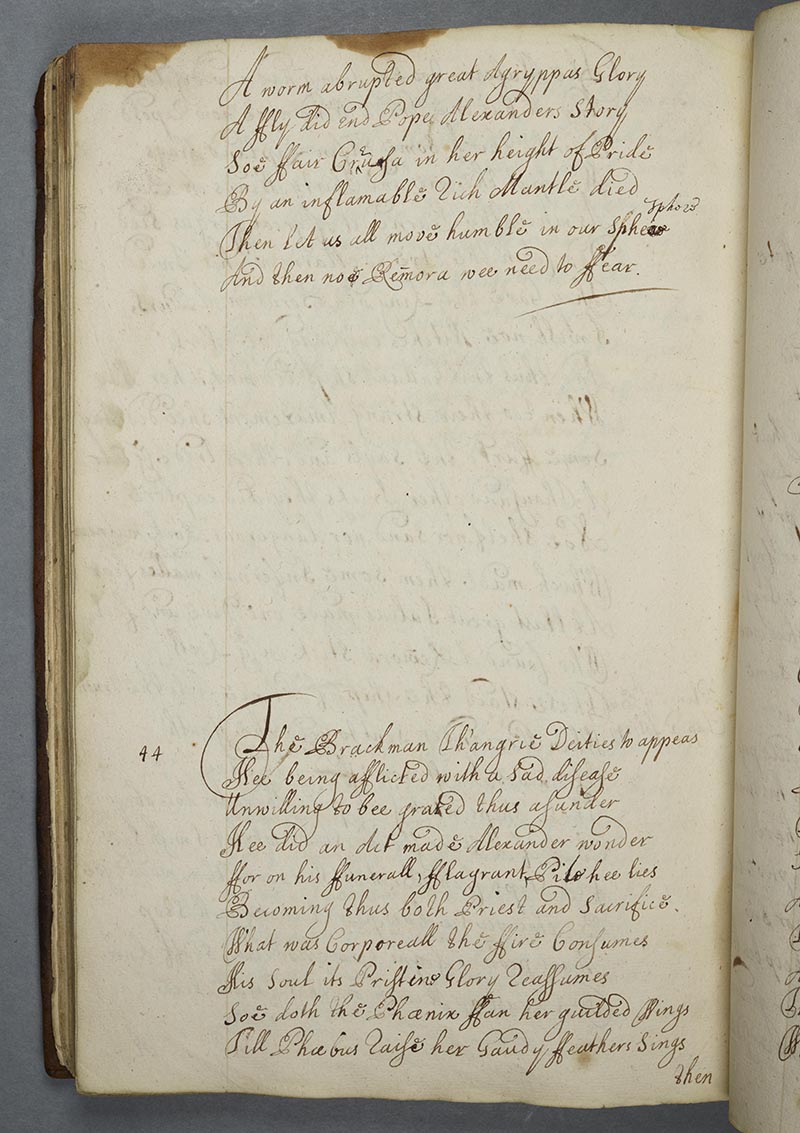 A worm abrupted great Agryppas Glory
A ffly did end Pope Alexanders Story
Soe ffair Creusa in her height of Pride
By an inflamable Rich Mantle died
Then let us all move humble in our Sphere
Sphere
And then noe Remora wee need to ffear.
44
The Brackman Th'angrie Deities to appeas
Hee being afflicted with a sad disease
Unwilling to bee grated thus asunder
Hee did an Act made Alexander wonder
ffor on his ffunerall, fflagrant, Pile hee lies
Becoming thus both Priest and Sacrifice.
What was Corporeall the ffire Consumes
His Soul its Pristine Glory Reassumes
Soe doth the Phœnix ffan her guilded Wings
Till Phœbus Raise her Gaudy ffeathers Sings
then